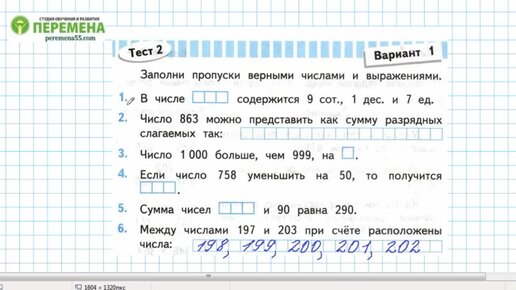 СТУДИЯ ОБУЧЕНИЯ И РАЗВИТИЯ
ПЕРЕМЕНА
peremena55.com
Тест 2
Вариант 1
Заполни пропуски верными числами и выражениями.
1. В числе содержится 9 сот., 1 дес. и 7 ед.
2. Число 863 можно представить как сумму разрядных
слагаемых так:
3. Число 1 000 больше, чем 999, на .
4. Если число 758 уменьшить на 50, то получится
.
5. Сумма чисел и 90 равна 290.
6. Между числами 197 и 203 при счёте расположены
числа: 198, 199, 200, 201, 202
1604 × 1320пкс